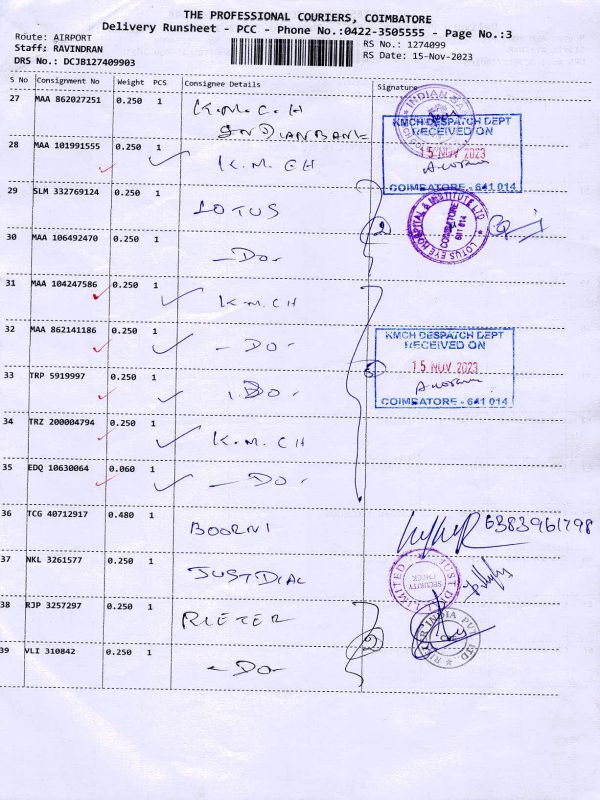 THE PROFESSIONAL COURIERS, COIMBATORE
Delivery Runsheet - PCC - Phone No.:0422-3505555 - Page No.:3
Route: AIRPORT
Staff: RAVINDRAN
DRS No.: DCJB127409903
RS No.: 1274099
RS Date: 15-Nov-2023
S No Consignment No Weight PCS Consignee Details Signature
27 MAA 862027251 0.250 1 K.M.C.H
INDIAN BANK
28 MAA 101991555 0.250 1 K.M.CH
KMCH DESPATCH DEPT
RECEIVED ON
15 NOV 2023
COIMBATORE - 641 014
29 SLM 332769124 0.250 1 LOTUS
LOTUS EYE HOSPITAL & INSTITUTE LTD
COIMBATORE
641 014
2
30 MAA 106492470 0.250 1 -Do-
31 MAA 104247586 0.250 1 K.M.CH
32 MAA 862141186 0.250 1 -Do-
KMCH DESPATCH DEPT
RECEIVED ON
15 NOV 2023
COIMBATORE - 641 014
5
33 TRP 5919997 0.250 1 -Do-
34 TRZ 200004794 0.250 1 K.M.CH
35 EDQ 10630064 0.060 1 -Do-
36 TCG 40712917 0.480 1 BOORNI
6383961798
37 NKL 3261577 0.250 1 JUSTDIAL
JUST DIAL LIMITED
SECURITY
CHECK
38 RJP 3257297 0.250 1 RIETER
2
39 VLI 310842 0.250 1 -Do-